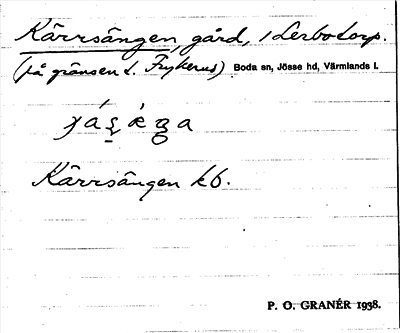 Kärrsängen, gård, i Lerbotorp.
(på gränsen t. Frykerud) Boda sn, Jösse hd, Värmlands l.
Kärrsängen kb.
P. O. GRANÉR 1938.